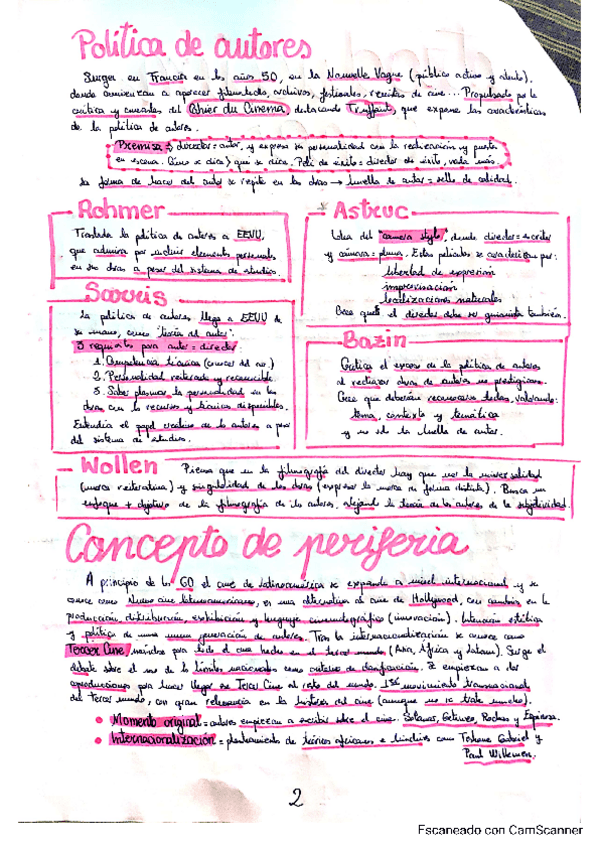 Política de autores
Surge en Francia en los años 50, en la Nouvelle Vague (público activo y atento),
donde comienzan a aparecer filmotecas, archivos, festivales, revistas de cine... Propulsado por la
crítica y cineastas del Cahier du Cinema, destacando Truffaut, que expone las características
de la política de autores.
Premisa → director = autor, y expresa su personalidad con la realización y puesta
en escena. Cómo se dice > qué se dice. Peli de éxito = director de éxito, nada más.
La forma de hacer del autor se repite en las obras → huella de autor = sello de calidad.
Rohmer
Traslada la política de autores a EEUU,
que admira por incluir elementos personales
en sus obras a pesar del sistema de estudios.
Astruc
Idea del "camera stylo", donde director = escritor
y cámara = pluma. Estas películas se caracterizan por:
libertad de expresión
improvisación
localizaciones naturales
Cree que el director debe ser guionista también.
Sarris
La política de autores llega a EEUU de
su mano, como "teoría del autor".
3 requisitos para autor = director:
1. Competencia técnica
2. Personalidad reiterada y reconocible.
3. Saber plasmar la personalidad en las
obras con los recursos y técnicas disponibles.
Estudia el papel creativo de los autores a pesar
del sistema de estudios.
Bazin
Critica el exceso de la política de autores
al rechazar obras de autores no prestigiosos.
Cree que deberían reconocerse todas, valorando:
tema, contexto y temática
y no solo la huella de autor.
Wollen
Piensa que en la filmografía del director hay que ver la universalidad
(marca reiterativa) y singularidad de las obras (expresar la marca de forma distinta). Busca un
enfoque + objetivo de la filmografía de los autores, alejando la teoría de los autores de la subjetividad.
Concepto de periferia
A principio de los 60 el cine de Latinoamérica se expande a nivel internacional y se
conoce como Nuevo cine latinoamericano, es una alternativa al cine de Hollywood, con cambios en la
producción, distribución, exhibición y lenguaje cinematográfico (innovación). Intención estética
y política de una nueva generación de autores. Tras la internacionalización se conoce como
Tercer Cine, para todo el cine hecho en el tercer mundo (Asia, África y Latam). Surge el
debate sobre el uso de los límites nacionales como criterio de clasificación. Se empiezan a dar
coproducciones para hacer llegar el Tercer Cine al resto del mundo. 1er movimiento transnacional
del tercer mundo, con gran relevancia en la historia del cine (aunque no se trate mucho).
• Momento original = autores empiezan a escribir sobre el cine. Solanas, Getino, Rocha y Espinosa.
• Internacionalización = planteamiento de teóricos africanos e hindúes como Teshome Gabriel y
Paul Willemen.
2
Escaneado con CamScanner